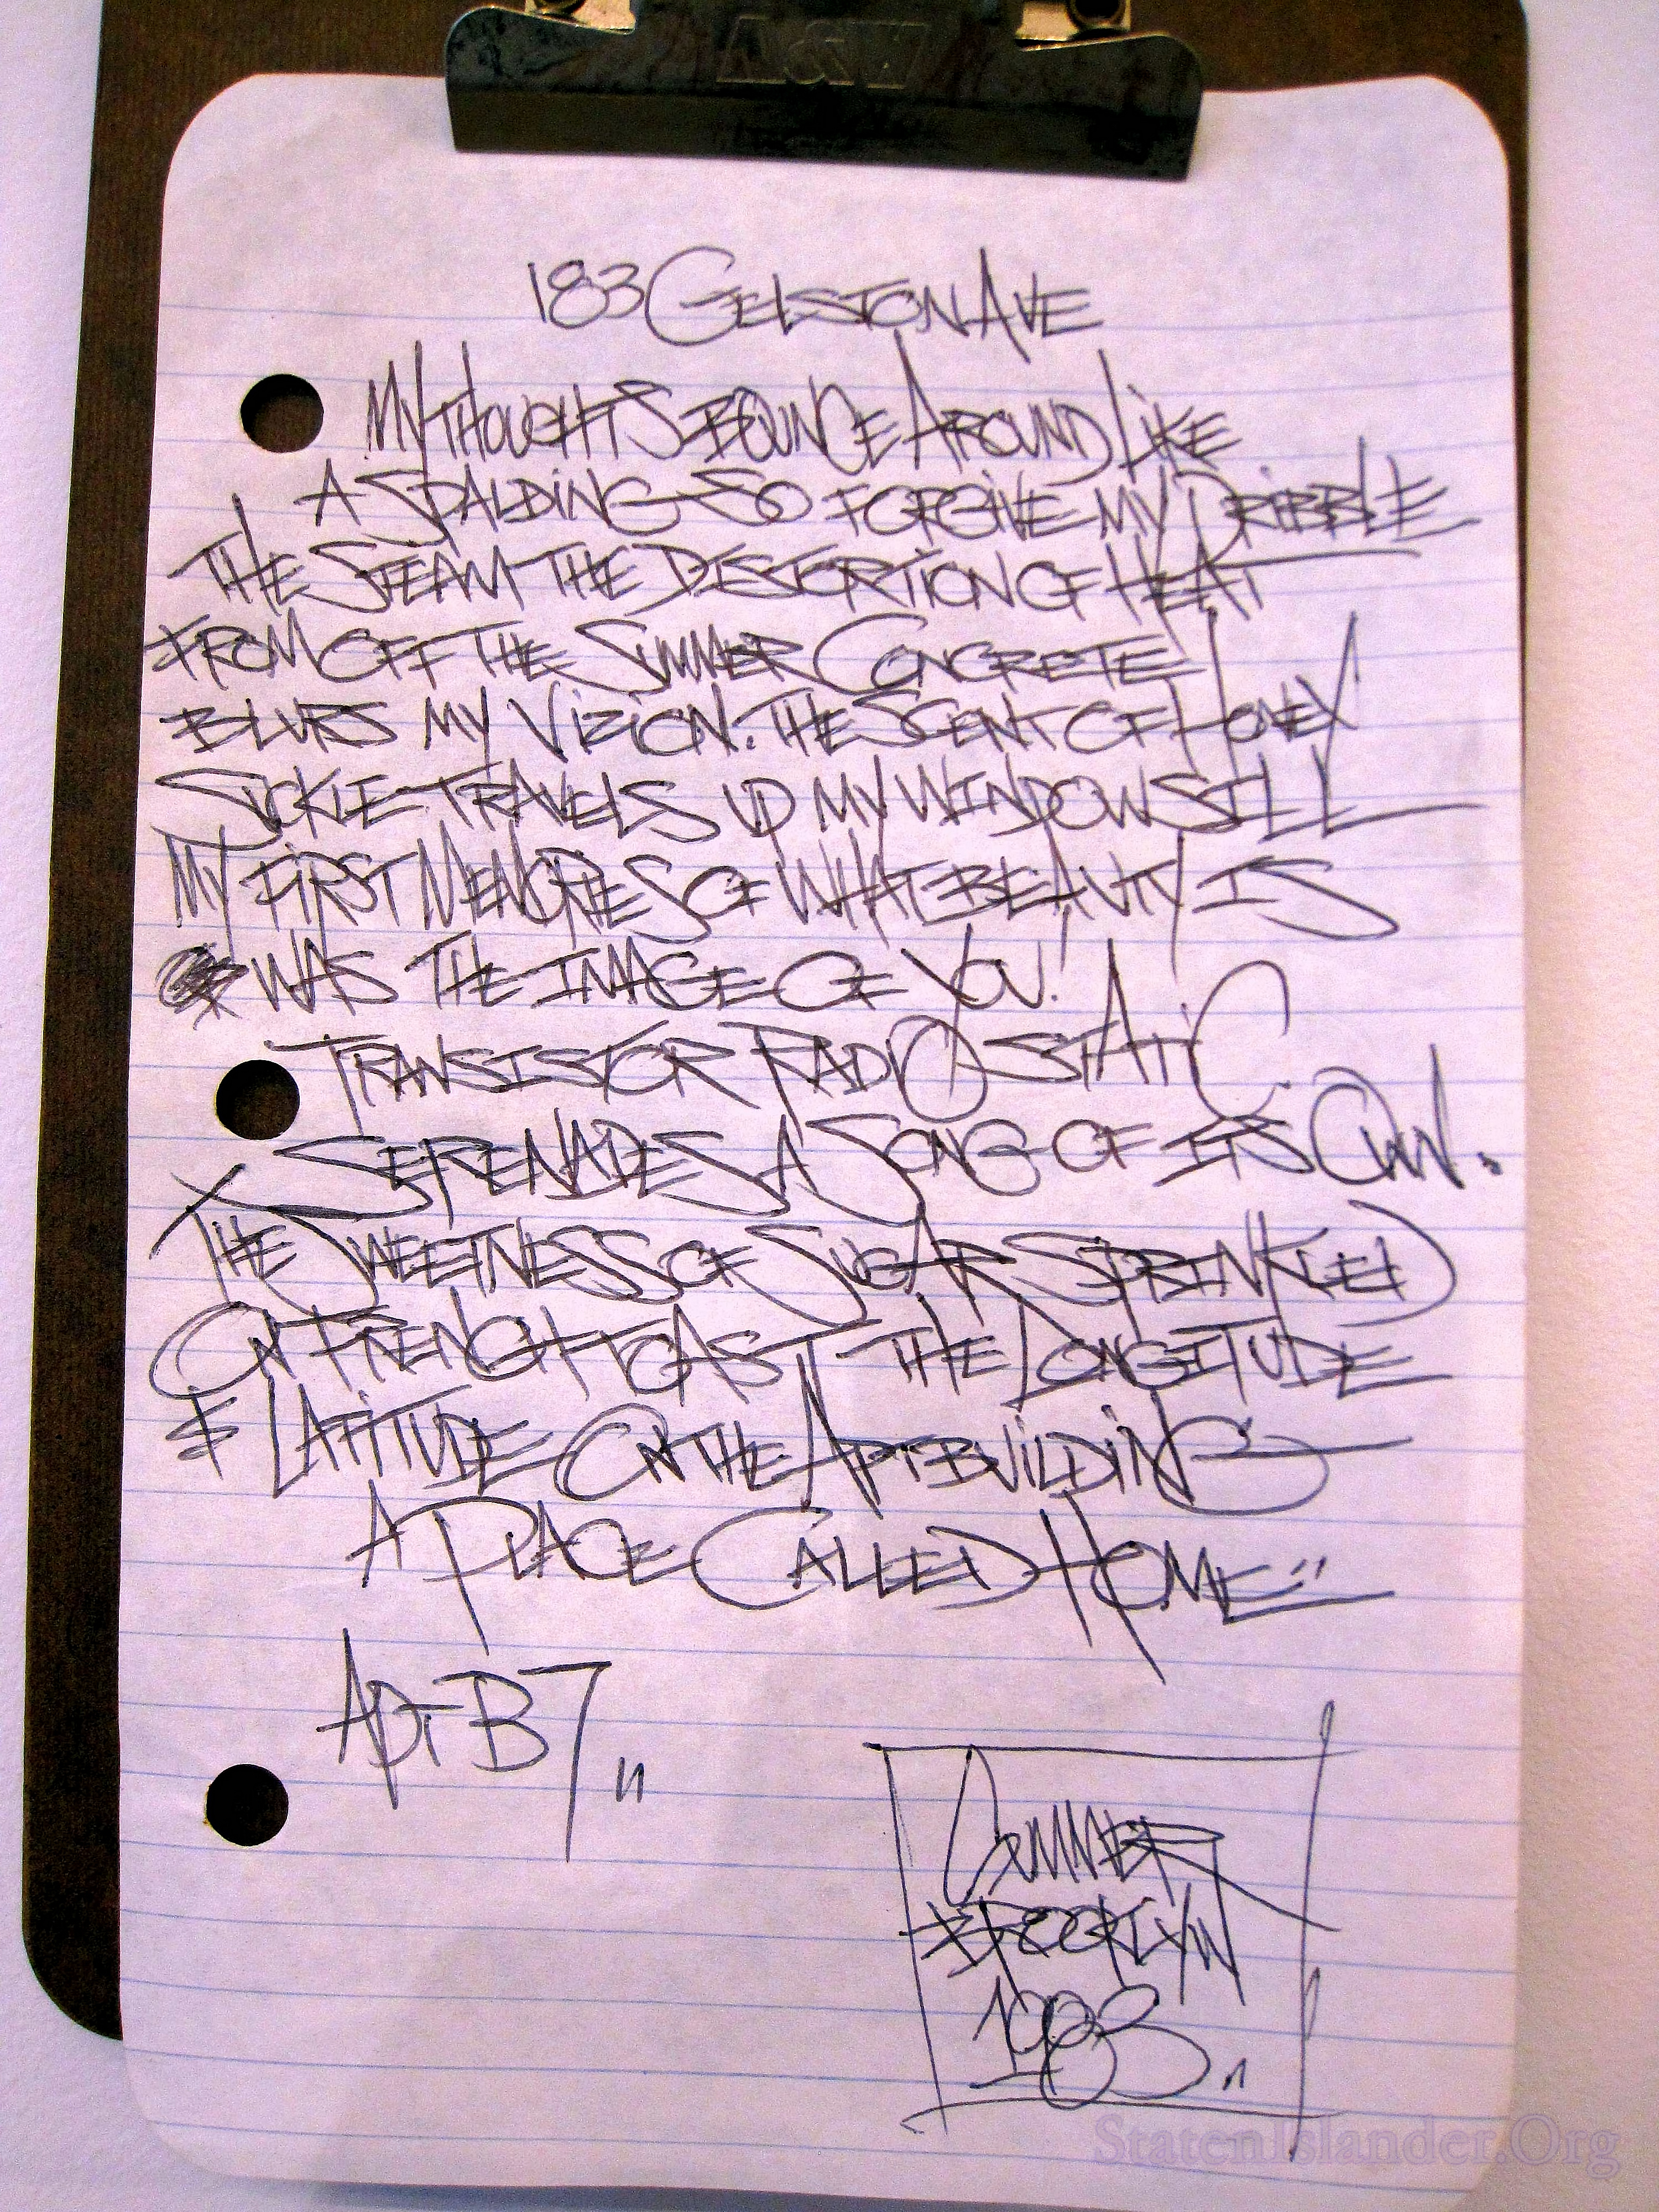 A&W
183 GELSTON AVE
MY THOUGHTS BOUNCE AROUND LIKE
A SPALDING SO FORGIVE MY DRIBBLE
THE STEAM THE DISTORTION OF HEAT
FROM OFF THE SUMMER CONCRETE
BLURS MY VIZION. THE SCENT OF HONEY
SUCKLE TRAVELS UP MY WINDOW SILL
MY FIRST MEMORIES OF WHAT BEAUTY IS
WAS THE IMAGE OF YOU!
TRANSISTOR RADIO STATIC
SERENADES A SONG OF ITS OWN.
THE SWEETNESS OF SUGAR SPRINKLED
ON FRENCH TOAST THE LONGITUDE
& LATITUDE ON THE APT BUILDING
A PLACE CALLED HOME"
APT B7"
SUMMER
BROOKLYN
1983"
StatenIslander.Org